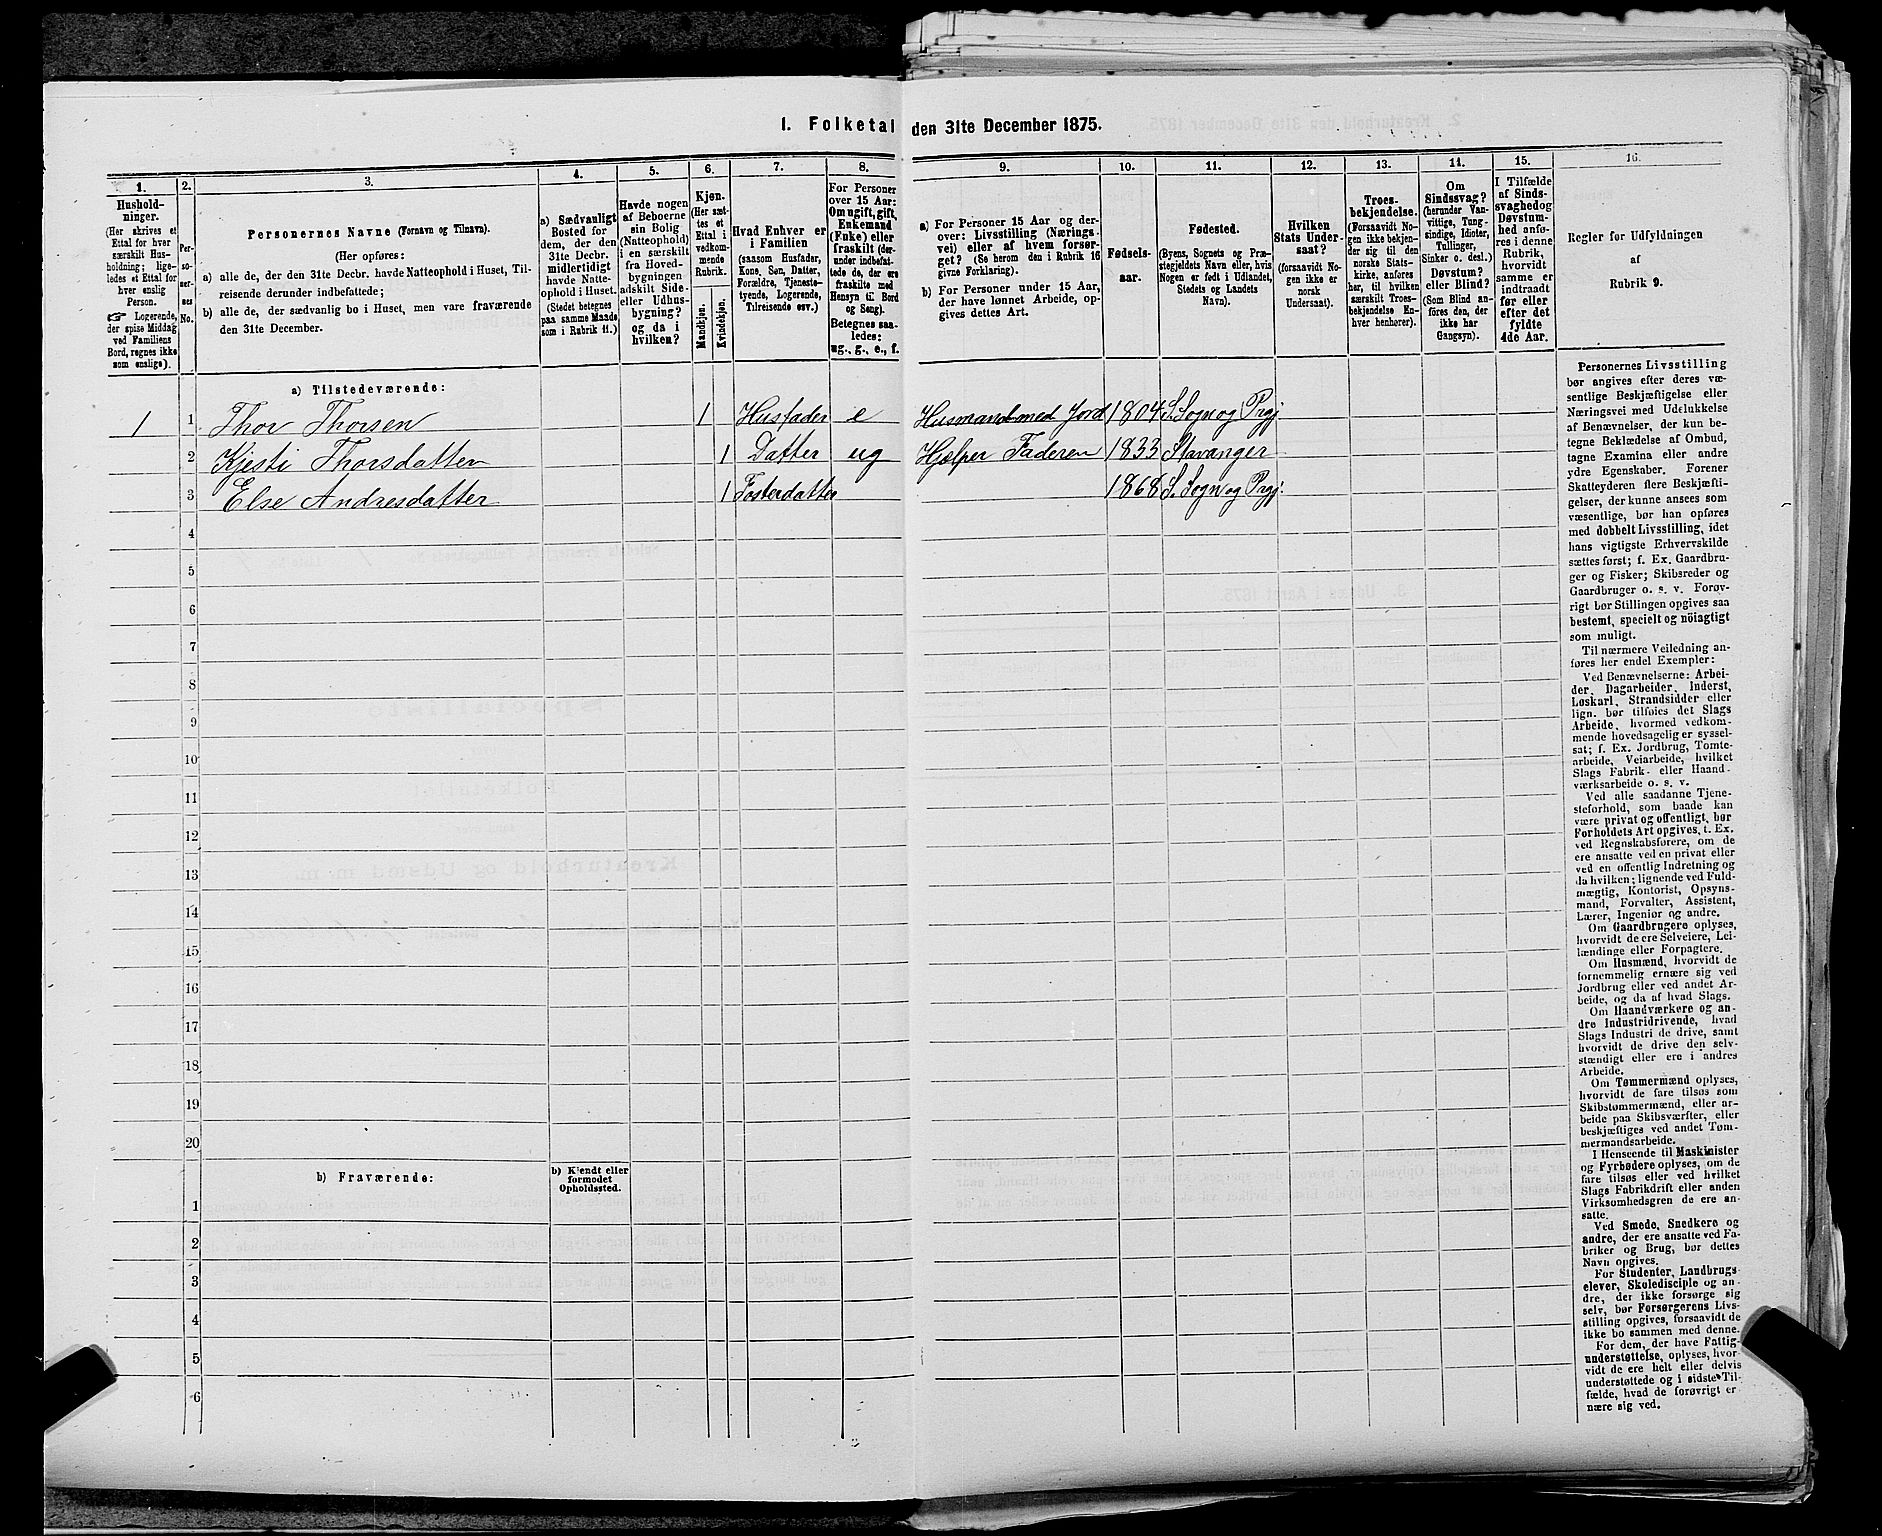 1. Folketal den 31te December 1875.
1.
Hushold-
ninger.
(Her skrives et
Ettal for hver
særskilt Hus-
holdning; lige-
ledes et Ettal for
hver enslig
Person.
☞ Logerende,
der spise Middag
ved Familiens
Bord, regnes ikke
som enslige).
2.
Per-
so-
ner-
nes
No.
3.
Personernes Navne (Fornavn og Tilnavn).
(Her opføres:
a) alle de, der den 31te Decbr. havde Natteophold i Huset, Til-
reisende derunder indbefattede;
b) alle de, der sædvanlig bo i Huset, men vare fraværende
den 31te December.
4.
a) Sædvanligt
Bosted for
dem, der den
31te Decbr.
midlertidigt
havde Natte-
ophold i Huset.
(Stedet betegnes
paa samme Maade
som i Rubrik 11.)
5.
Havde nogen
af Beboerne
sin Bolig
(Natteophold)
i en særskilt
fra Hoved-
bygningen
adskilt Side-
eller Udhus-
bygning?
og da i
hvilken?
6.
Kjøn.
(Her sæt-
tes et
Ettal i
vedkom-
mende
Rubrik.
Mandkjøn.
Kvindekjøn.
7.
Hvad Enhver er
i Familien
(saasom Husfader,
Kone, Søn, Datter,
Forældre, Tjeneste-
tyende, Logerende,
Tilreisende osv.)
8.
For Personer
over 15 Aar:
Om ugift, gift,
Enkemand
(Enke) eller
fraskilt (der-
under indbefat-
tede de, der ere
fraskilte med
Hensyn til Bord
og Seng).
Betegnes saa-
ledes:
ug., g., e., f.
9.
a) For Personer 15 Aar og der-
over: Livsstilling (Nærings-
vei) eller af hvem forsør-
get? (Se herom den i Rubrik 16
givne Forklaring).
b) For Personer under 15 Aar,
der have lønnet Arbeide, op-
gives dettes Art.
10.
Fødsels-
aar.
11.
Fødested.
(Byens, Sognets og Præ-
stegjeldets Navn eller, hvis
Nogen er født i Udlandet,
Stedets og Landets
Navn).
12.
Hvilken
Stats Under-
saat?
(forsaavidt No-
gen ikke er
norsk
Undersaat).
13.
Troes-
bekjendelse.
(Forsaavidt No-
gen ikke bekjen-
der sig til den
norske Stats-
kirke, anføres
her, til hvilken
særskilt Troes-
bekjendelse En-
hver henhører).
14.
Om
Sindssvag?
(herunder Van-
vittige, Tung-
sindige, Idioter,
Tullinger,
Sinker o. desl.)
Døvstum?
eller Blind?
(Som Blind an-
føres den, der
ikke har
Gangsyn).
15.
I Tilfælde
af Sinds-
svaghed og
Døvstum-
hed anfø-
res i denne
Rubrik,
hvorvidt
samme er
indtraadt
før eller
efter det
fyldte
4de Aar.
16.
Regler for Udfyldningen
af
Rubrik 9.
a) Tilstedeværende:
1 1 Thor Thorsen 1 Husfader e Husmand med Jord 1804 S. Sogn og Prgj.
2 Kjesti Thorsdatter 1 Datter ug Hjælper Faderen 1833 Stavanger
3 Else Andresdatter 1 Fosterdatter 1868 S. Sogn og Prgj.
4
5
6
7
8
9
10
11
12
13
14
15
16
17
18
19
20
b) Fraværende:
b) Kjendt eller
formodet
Opholdssted.
1
2
3
4
5
6
Personernes Livsstilling
bør angives efter deres væ-
sentlige Beskjæftigelse eller
Næringsvei med Udelukkelse
af Benævnelser, der kun be-
tegne Beklædelse af Ombud,
tagne Examina eller andre
ydre Egenskaber. Forener
Skatteyderen flere Beskjæfti-
gelser, der kunne ansees som
væsentlige, bør han opføres
med dobbelt Livsstilling, idet
hans vigtigste Erhvervskilde
sættes først; f. Ex. Gaardbru-
ger og Fisker; Skibsreder og
Gaardbruger o. s. v. Forøv-
rigt bør Stillingen opgives saa
bestemt, specielt og nöiagtigt
som muligt.
Til nærmere Veiledning an-
føres her endel Exempler:
Ved Benævnelserne: Arbei-
der, Dagarbeider, Inderst,
Løskarl, Strandsidder eller
lign. bør tilføies det Slags
Arbeide, hvormed vedkom-
mende hovedsagelig er syssel-
sat; f. Ex. Jordbrug, Tomte-
arbeide, Veiarbeide, hvilket
Slags Fabrik- eller Haand-
værksarbeide o. s. v.
Ved alle saadanne Tjene-
steforhold, som baade kan
være privat og offentligt, bør
Forholdets Art opgives, t. Ex.
ved Regnskabsførere, om de
ere ansatte ved en privat eller
ved en offentlig Indretning og
da hvilken; lignende ved Fuld-
mægtig, Kontorist, Opsyns-
mand, Forvalter, Assistent,
Lærer, Ingeniør og andre.
Om Gaardbrugere oplyses,
hvorvidt de ere Selveiere, Lei-
lændinge eller Forpagtere.
Om Husmænd, hvorvidt de
fornemmelig ernære sig ved
Jordbrug eller ved andet Ar-
beide, og da af hvad Slags.
Om Haandværkere og an-
dre Industridrivende, hvad
Slags Industri de drive, samt
hvorvidt de drive den selv-
stændigt eller ere i andres
Arbeide.
Om Tømmermænd oplyses,
hvorvidt de fare tilsøs som
Skibstømmermænd, eller ar-
beide paa Skibsværfter, eller
beskjæftiges ved andet Tøm-
mermandsarbeide.
I Henseende til Maskinister
og Fyrbødere oplyses, om de
fare tilsøs eller ved hvilket
Slags Fabrikdrift eller anden
Virksomhedsgren de ere an-
satte.
Ved Smede, Snedkere og
andre, der ere ansatte ved Fa-
briker og Brug, bør dettes
Navn opgives.
For Studenter, Landbrugs-
elever, Skoledisciple og an-
dre, der ikke forsørge sig
selv, bør Forsørgerens Livs-
stilling opgives, forsaavidt de
ikke bo sammen med denne.
For dem, der have Fattig-
understøttelse, oplyses, hvor-
vidt de ere helt eller delvis
understøttede og i sidste Til-
fælde, hvad de forøvrigt er
nære sig ved.